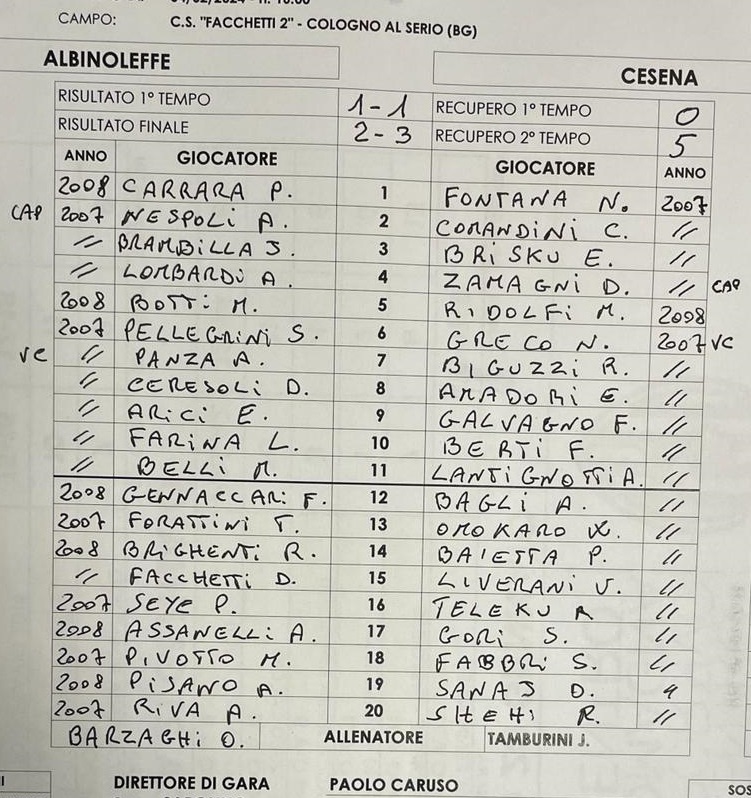 CAMPO: C.S. "FACCHETTI 2" - COLOGNO AL SERIO (BG)
ALBINOLEFFE CESENA
RISULTATO 1° TEMPO 1-1 RECUPERO 1° TEMPO 0
RISULTATO FINALE 2-3 RECUPERO 2° TEMPO 5
ANNO GIOCATORE GIOCATORE ANNO
2008 CARRARA P. 1 FONTANA N. 2007
CAP 2007 NESPOLI A. 2 COMANDINI C. //
// BRAMBILLA S. 3 BRISKU E. //
// LOMBARDI A. 4 ZAMAGNI D. // CAP
2008 BOTTI M. 5 RIDOLFI M. 2008
2007 PELLEGRINI S. 6 GRECO N. 2007 VC
VC // PANZA A. 7 BIGUZZI R. //
// CERESOLI D. 8 AMADORI E. //
// ARICI E. 9 GALVAGNO F. //
// FARINA L. 10 BERTI F. //
// BELLI M. 11 LANTIGNOTTI A. //
2008 GENNACCARI F. 12 BAGLI A. //
2007 FORATTINI T. 13 OMOKARO //
2008 BRIGHENTI R. 14 BAIETTA P. //
// FACCHETTI D. 15 LIVERANI V. //
2007 SEYE P. 16 TELEKU R //
2008 ASSANELLI A. 17 GORI S. //
2007 PIVOTTO M. 18 FABBRI S. //
2008 PISANO A. 19 SANAJ D. //
2007 RIVA A. 20 SHEHI R. //
BARZAGHI O. ALLENATORE TAMBURINI J.
DIRETTORE DI GARA PAOLO CARUSO